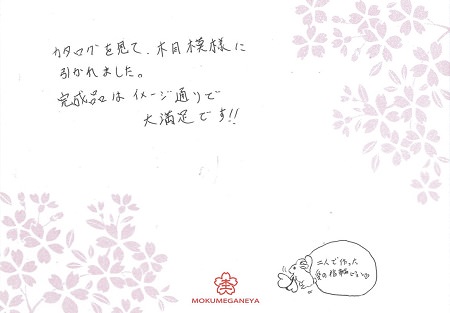 カタログを見て、木目模様に
引かれました。
完成品はイメージ通りで
大満足です!!
二人で作った
MOKUMEGANEYA